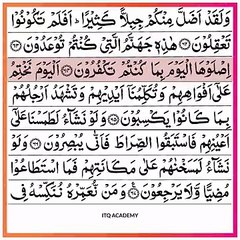 وَلَقَدْ اَضَلَّ مِنْكُمْ جِبِلًّا كَثِيْرًا ؕ اَفَلَمْ تَكُوْنُوْا
تَعْقِلُوْنَ ﴿۶۲﴾ هٰذِهٖ جَهَنَّمُ الَّتِيْ كُنْتُمْ تُوْعَدُوْنَ ﴿۶۳﴾
اِصْلَوْهَا الْيَوْمَ بِمَا كُنْتُمْ تَكْفُرُوْنَ ﴿۶۴﴾ اَلْيَوْمَ نَخْتِمُ
عَلٰٓى اَفْوَاهِهِمْ وَتُكَلِّمُنَاۤ اَيْدِيْهِمْ وَتَشْهَدُ اَرْجُلُهُمْ
بِمَا كَانُوْا يَكْسِبُوْنَ ﴿۶۵﴾ وَلَوْ نَشَآءُ لَطَمَسْنَا عَلٰٓى
اَعْيُنِهِمْ فَاسْتَبَقُوا الصِّرَاطَ فَاَنّٰى يُبْصِرُوْنَ ﴿۶۶﴾ وَلَوْ
نَشَآءُ لَمَسَخْنٰهُمْ عَلٰى مَكَانَتِهِمْ فَمَا اسْتَطَاعُوْا
مُضِيًّا وَّلَا يَرْجِعُوْنَ ﴿۶۷﴾ وَمَنْ نُّعَمِّرْهُ نُنَكِّسْهُ فِي
ITQ ACADEMY